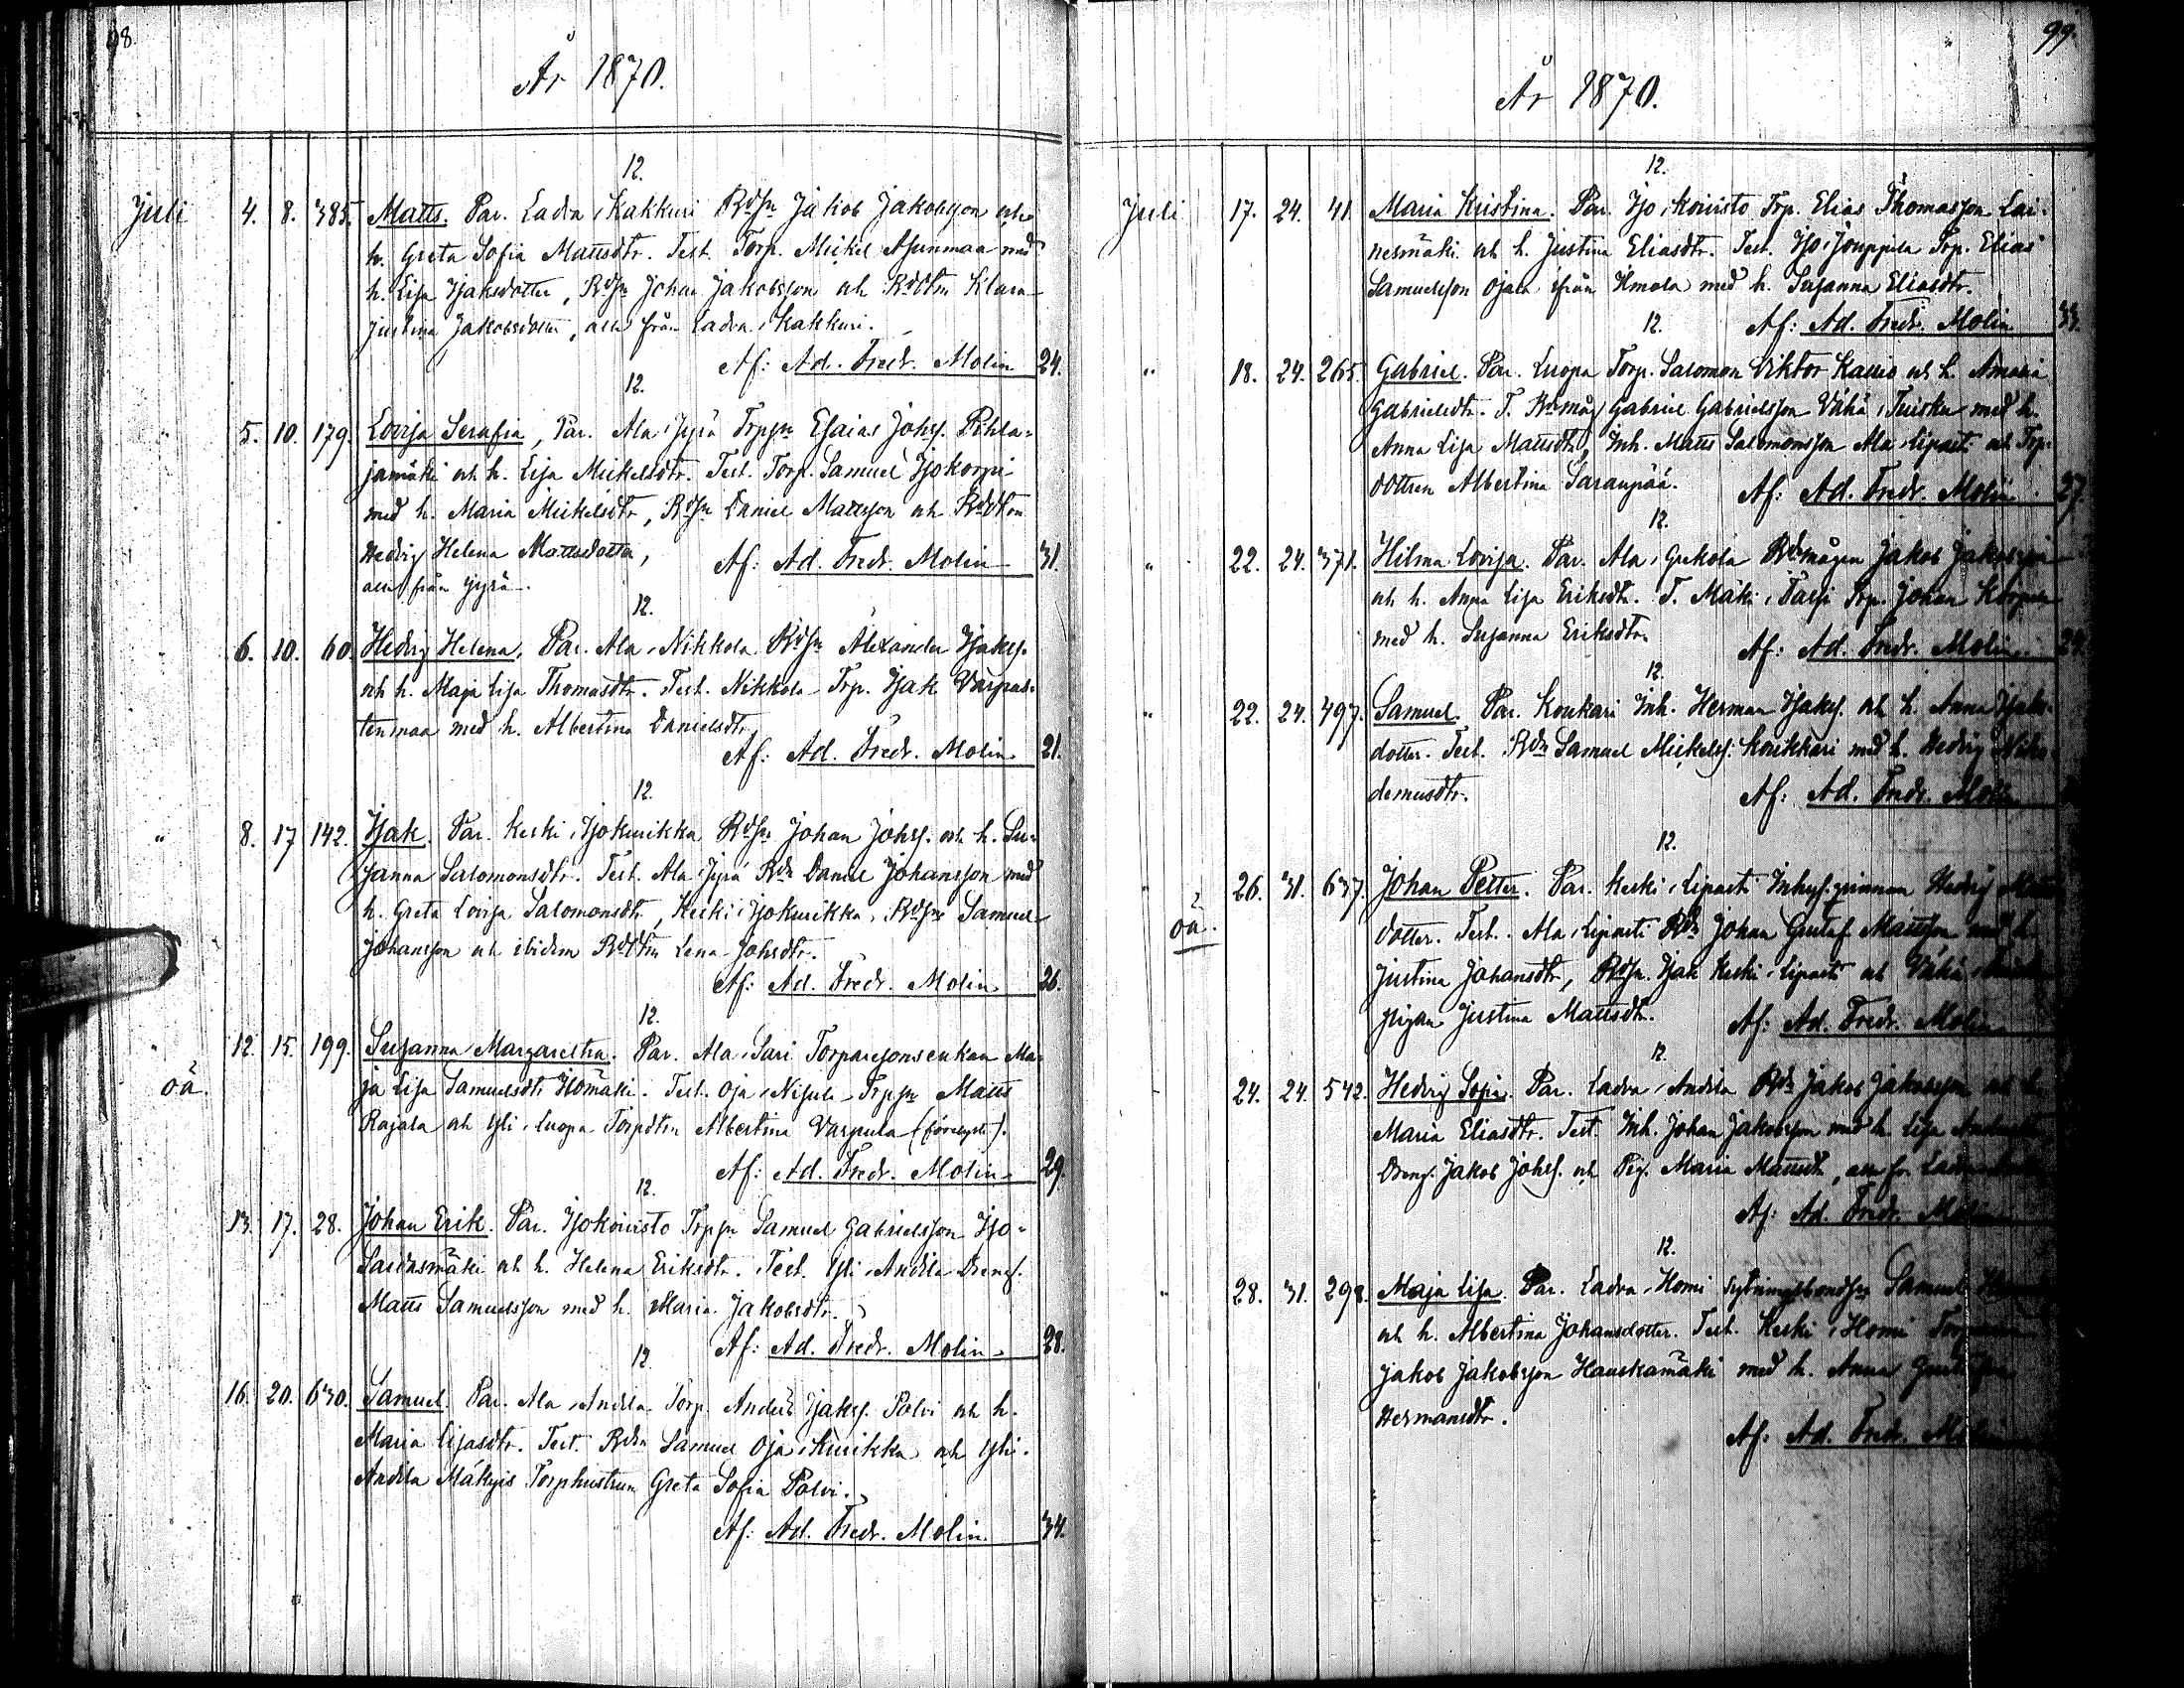 98.
År 1870.
12.
Juli 4. 8. 385. Matts. Par. Ladva, Kakkuri Rdsn Jakob Jakobsson och
h. Greta Sofia Mattsdtr. Test. Torp. Mickel Asunmaa med
h. Lisa Isaksdotter, Rdsn Johan Jakobsson och Rddtrn Klara
Justina Jakobsdotter, alla från Ladva, Kakkuri.
Af: Ad. Fredr. Molin 24.
12.
5. 10. 179. Lovisa Serafia, Par. Ala, Jyrä Trpsn Esaias Johss. Pihla-
jamäki och h. Lisa Mickelsdtr. Test. Torp. Samuel Isokorpi
med h. Maria Mickelsdtr, Rdsn Daniel Mattsson och Rddtrn
Hedvig Helena Mattsdotter,
alla från Jyrä. Af: Ad. Fredr. Molin 31.
12.
6. 10. 60. Hedvig Helena. Par. Ala, Nikkola Rdsn Alexander Isakss.
och h. Maja Lisa Thomasdtr. Test. Nikkola Trp. Isak Varpus-
tenmaa med h. Albertina Danielsdtr.
Af: Ad. Fredr. Molin 21.
12.
" 8. 17 142. Isak. Par. Keski, Isokurikka Rdsn Johan Johss. och h. Su-
sanna Salomonsdtr. Test. Ala Jyrä Rdn Daniel Johansson med
h. Greta Lovisa Salomonsdtr, Keski, Isokurikka, Rdsn Samuel
Johansson och ibidem Rddtrn Lena Johsdtr.
Af: Ad. Fredr. Molin 26.
12.
" 12. 15. 199. Susanna Margaretha. Par. Ala, Sari Torparesonsenkan Ma-
oä. ja Lisa Samuelsdtr Homäki. Test. Oja, Nisula Trpsn Matts
Rajala och Yli, Luopa Torpdtrn Albertina Varpula
Af: Ad. Fredr. Molin 29.
12.
13. 17. 28. Johan Erik. Par. Isokoivisto Trpsn Samuel Gabrielsson Iso-
och h. Helena Eriksdtr. Test. Yli, Andila Dreng.
Matts Samuelsson med h. Maria Jakobsdtr.
Af: Ad. Fredr. Molin 28.
12.
16. 20. 630. Samuel. Par. Ala, Andila Torp. Anders Isakss. Polvi och h.
Maria Lisasdtr. Test. Rdn Samuel Oja, Kurikka och Yli-
Andila Torphustrun Greta Sofia Polvi.
Af: Ad. Fredr. Molin 34.
99.
År 1870.
12.
Juli 17. 24. 41. Maria Kristina. Par. Iso, Koivisto Trp. Elias Thomasson Lai-
nesmäki och h. Justina Eliasdtr. Test. Iso, Jouppila Trp. Elias
Samuelsson Ojala ifrån Ilmola med h. Susanna Eliasdtr.
Af: Ad. Fredr. Molin 33.
12.
" 18. 24. 265. Gabriel. Par. Luopa Torp. Salomon Viktor Kallio och h. Amalia
Gabrielsdtr. T. Rdmåg Gabriel Gabrielsson Vähä, Tuisku med h.
Anna Lisa Mattsdtr, Inh. Matts Salomonsson Ala, Lipasti och Trp.
dottren Albertina Saranpää. Af: Ad. Fredr. Molin. 27.
12.
" 22. 24. 371. Hilma Lovisa. Par. Ala, Grekola Rdmågen Jakob Jakobsson
och h. Anna Lisa Eriksdtr. T. Mäki, Passi Trp. Johan
med h. Susanna Eriksdtr. Af: Ad. Fredr. Molin. 24.
12.
" 22. 24. 497. Samuel. Par. Koukari Inh. Herman Isakss. och h. Anna Isaks-
dotter. Test. Rdn Samuel Mickelss. Koukkari med h. Hedvig Niko-
demusdtr. Af: Ad. Fredr. Molin
12.
26. 31. 637. Johan Petter. Par. Keski, Lipasti Inhys.qvinnan Hedvig
oä. dotter. Test. Ala, Lipasti Rdn Johan Gustaf Mattsson med h.
Justina Johansdtr, Rdsn Isak Keski, Lipasti och Vähä,
pigan Justina Mattsdtr. Af: Ad. Fredr. Molin
12.
24. 24. 542. Hedvig Sofia. Par. Ladva, Andila Rdn Jakob Jakobsson och h.
Maria Eliasdtr. Test. Inh. Johan Jakobsson med h. Lisa
Dreng. Jakob Johss. och Pig. Maria Mattsdtr, alla fr. Ladva
Af: Ad. Fredr. Molin
12.
" 28. 31. 298. Maja Lisa. Par. Ladva, Homi Sytningsbondsn Samuel
och h. Albertina Johansdotter. Test. Keski, Homi
Jakob Jakobsson Hauskamäki med h. Anna
Hermansdtr.
Af: Ad. Fredr. Molin